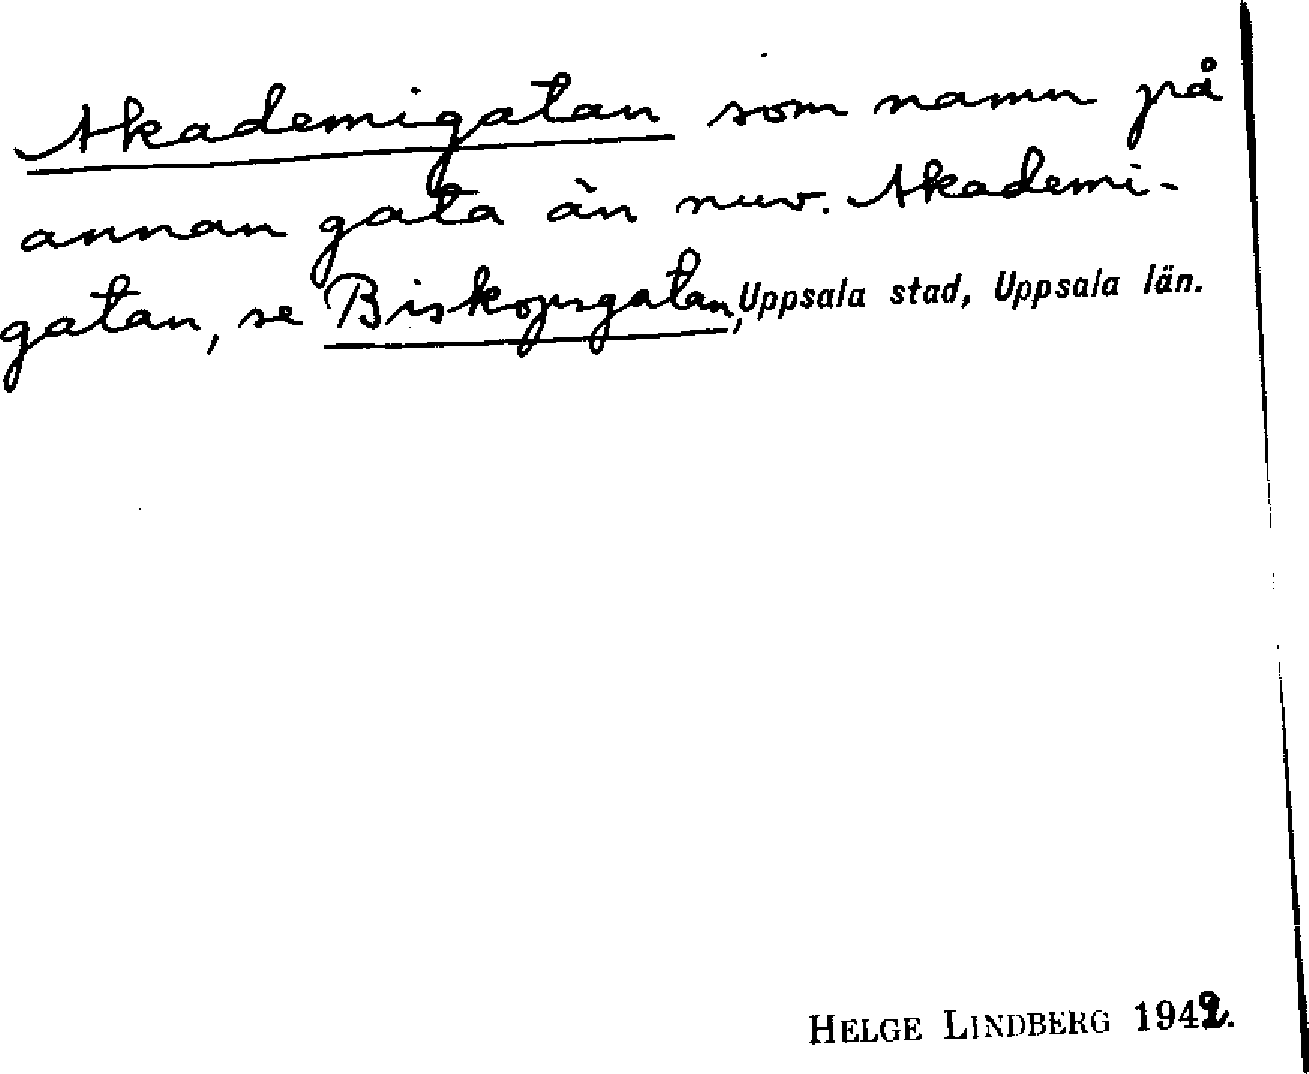 Akademigatan som namn på
annan gata än nuv. Akademi-
gatan, se Biskopsgatan, Uppsala stad, Uppsala län.
HELGE LINDBERG 1942.